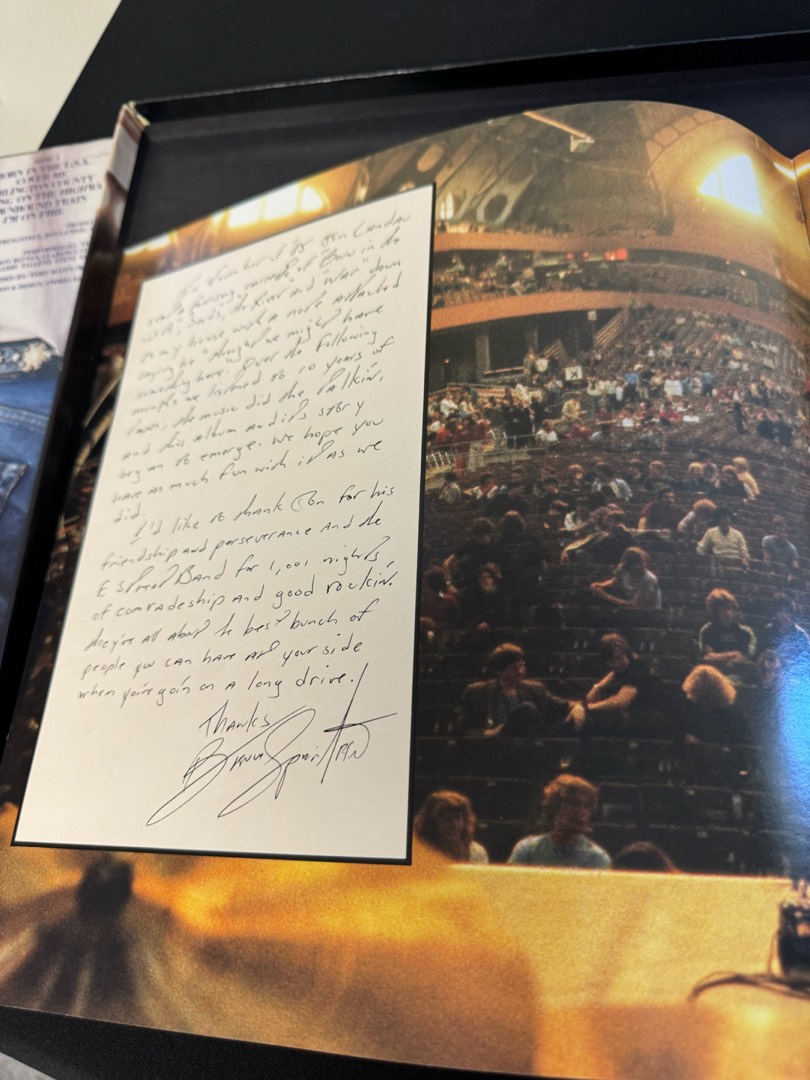 BORN IN THE U.S.A.
COVER ME
DARLINGTON COUNTY
WORKING ON THE HIGHWAY
DOWNBOUND TRAIN
I'M ON FIRE
Jon Landau
of "Born in the
U.S.A.", "The River" and "War" down
to my house with a note attached
saying he "thought we might have
something here." Over the following
months we listened to 10 years of
tapes, the music did the talkin',
and this album and it's story
began to emerge. We hope you
have as much fun with it as we
did.
I'd like to thank Jon for his
friendship and perseverance and the
E Street Band for 1,001 nights
of comradeship and good rockin'.
they're all about the best bunch of
people you can have at your side
when you're goin' on a long drive.
Thanks
Bruce Springsteen